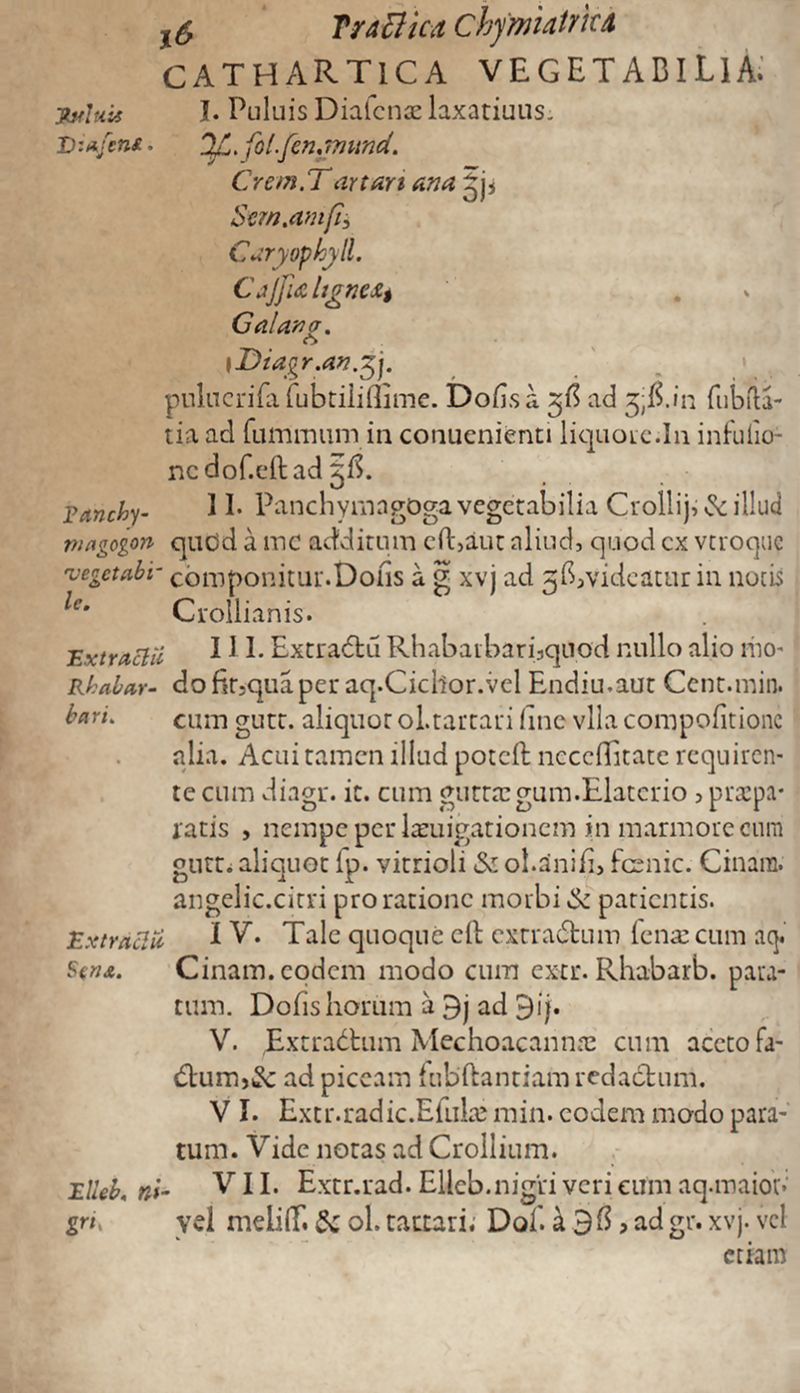 16 Practica Chymiatrica
CATHARTICA VEGETABILIA.
Puluis I. Puluis Diasenæ laxatiuus.
Diasenæ. ℞. fol. sen. mund.
Crem. Tartari ana ℥j;
Sem. anisi;
Caryophyll.
Cassiæ ligneæ;
Galang.
Diagr. an. ʒj.
pulucrisa subtilissime. Dosis à ʒß ad ʒjß. in substā-
tia ad summum in conuenienti liquore. In infusio-
ne dos. est ad ℥ß.
Panchy- II. Panchymagoga vegetabilia Crollij, & illud
magogon quod à me additum est, aut aliud, quod ex vtroque
vegetabi- componitur. Dosis à g xvj ad ʒß, videatur in notis
le. Crollianis.
Extractū III. Extractū Rhabarbari, quod nullo alio mo-
Rhabar- do fit, quā per aq. Cichor. vel Endiu. aut Cent. min.
bari. cum gutt. aliquot ol. tartari sine vlla compositione
alia. Acui tamen illud potest necessitate requiren-
te cum diagr. it. cum guttæ gum. Elaterio, præpa-
ratis, nempe per læuigationem in marmore cum
gutt. aliquot sp. vitrioli & ol. anisi, fœnic. Cinam.
angelic. citri pro ratione morbi & patientis.
Extractū IV. Tale quoque est extractum senæ cum aq.
Senæ. Cinam. eodem modo cum extr. Rhabarb. para-
tum. Dosis horum à ℈j ad ℈ij.
V. Extractum Mechoacannæ cum aceto fa-
ctum, & ad piceam substantiam redactum.
VI. Extr. radic. Esulæ min. eodem modo para-
tum. Vide notas ad Crollium.
Elleb. ni- VII. Extr. rad. Elleb. nigri veri cum aq. maior.
gri. vel meliss. & ol. tartari. Dos. à ℈ß, ad gr. xvj. vel
etiam